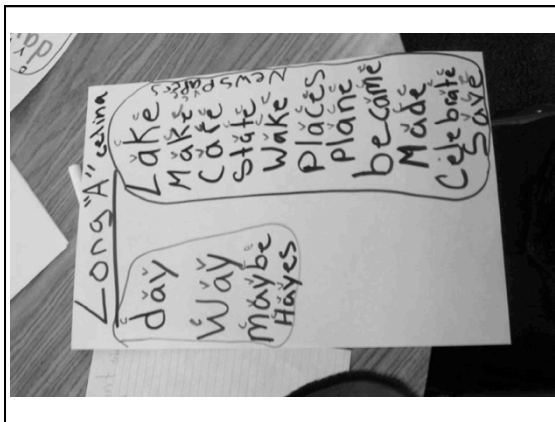 Long "A" celina
day
Way
maybe
Hayes
Lake
Make
Cake
State
Wake
Places
Plane
became
Made
Celebrate
Save
Newspapers